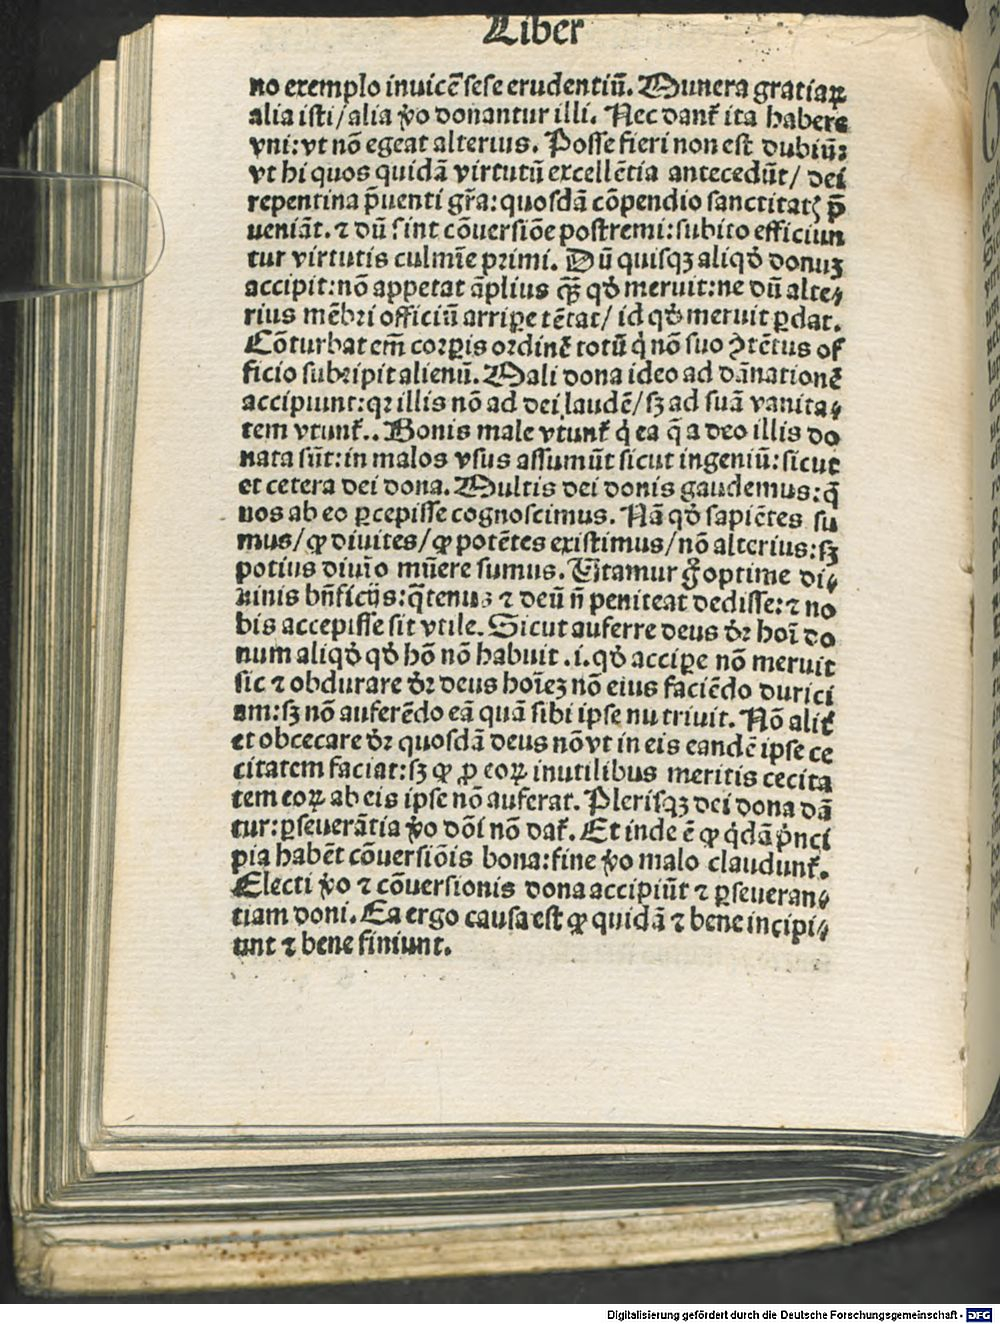 Liber
no exemplo inuicē sese erudentiū. Munera gratiaꝝ
alia isti/alia ꝟo donantur illi. Nec danť ita habere
vni: vt nō egeat alterius. Posse fieri non est dubiū:
vt hi quos quidā virtutū excellētia antecedūt/ dei
repentina p̄uenti gr̄a: quosdā cōpendio sanctitatꝭ p̄
ueniāt. ⁊ dū sint cōuersiōe postremi: subito efficiun
tur virtutis culmīe primi. Dū quisqꝫ aliqđ donuꝫ
accipit: nō appetat āplius qꝫ̄ qđ meruit: ne dū alte⸗
rius mēbri officiū arripe tētat/ id qđ meruit ꝑdat.
Cōturbat em̄ corꝑis ordinē totū q̇ nō suo ꝯtētus of
ficio subripit alienū. Mali dona ideo ad dānationē
accipiunt: qꝛ illis nō ad dei laudē/ sꝫ ad suā vanita⸗
tem vtunť.. Bonis male vtunť q̇ ea q̄ a deo illis do
nata sūt: in malos vsus assumūt sicut ingeniū: sicut
et cetera dei dona. Multis dei donis gaudemus: q̄
nos ab eo ꝑcepisse cognoscimus. Nā qđ sapiētes su
mus/ ꝙ diuites/ ꝙ potētes existimus/ nō alterius: sꝫ
potius diuīo mūere sumus. Vtamur g̊ optime di⸗
uinis bn̄ficijs: q̄tenus ⁊ deū n̄ peniteat dedisse: ⁊ no
bis accepisse sit vtile. Sicut auferre deus đꝛ hoī do
num aliqđ qđ hō nō habuit .i. qđ accipe nō meruit
sic ⁊ obdurare đꝛ deus hoīeꝫ nō eius faciēdo durici
am: sꝫ nō auferēdo eā quā sibi ipse nutriuit. Nō aliť
et obcecare đꝛ quosdā deus nō vt in eis eandē ipse ce
citatem faciat: sꝫ ꝙ ꝓ eoꝝ inutilibus meritis cecita
tem eoꝝ ab eis ipse nō auferat. Plerisqꝫ dei dona dā
tur: ꝑseuerātia ꝟo dōi nō dať. Et inde ē ꝙ q̇dā p̓nci
pia habēt cōuersiōis bona: fine ꝟo malo claudunť.
Electi ꝟo ⁊ cōuersionis dona accipiūt ⁊ ꝑseueran⸗
tiam doni. Ea ergo causa est ꝙ quidā ⁊ bene incipi⸗
unt ⁊ bene finiunt.
Digitalisierung gefördert durch die Deutsche Forschungsgemeinschaft - DFG